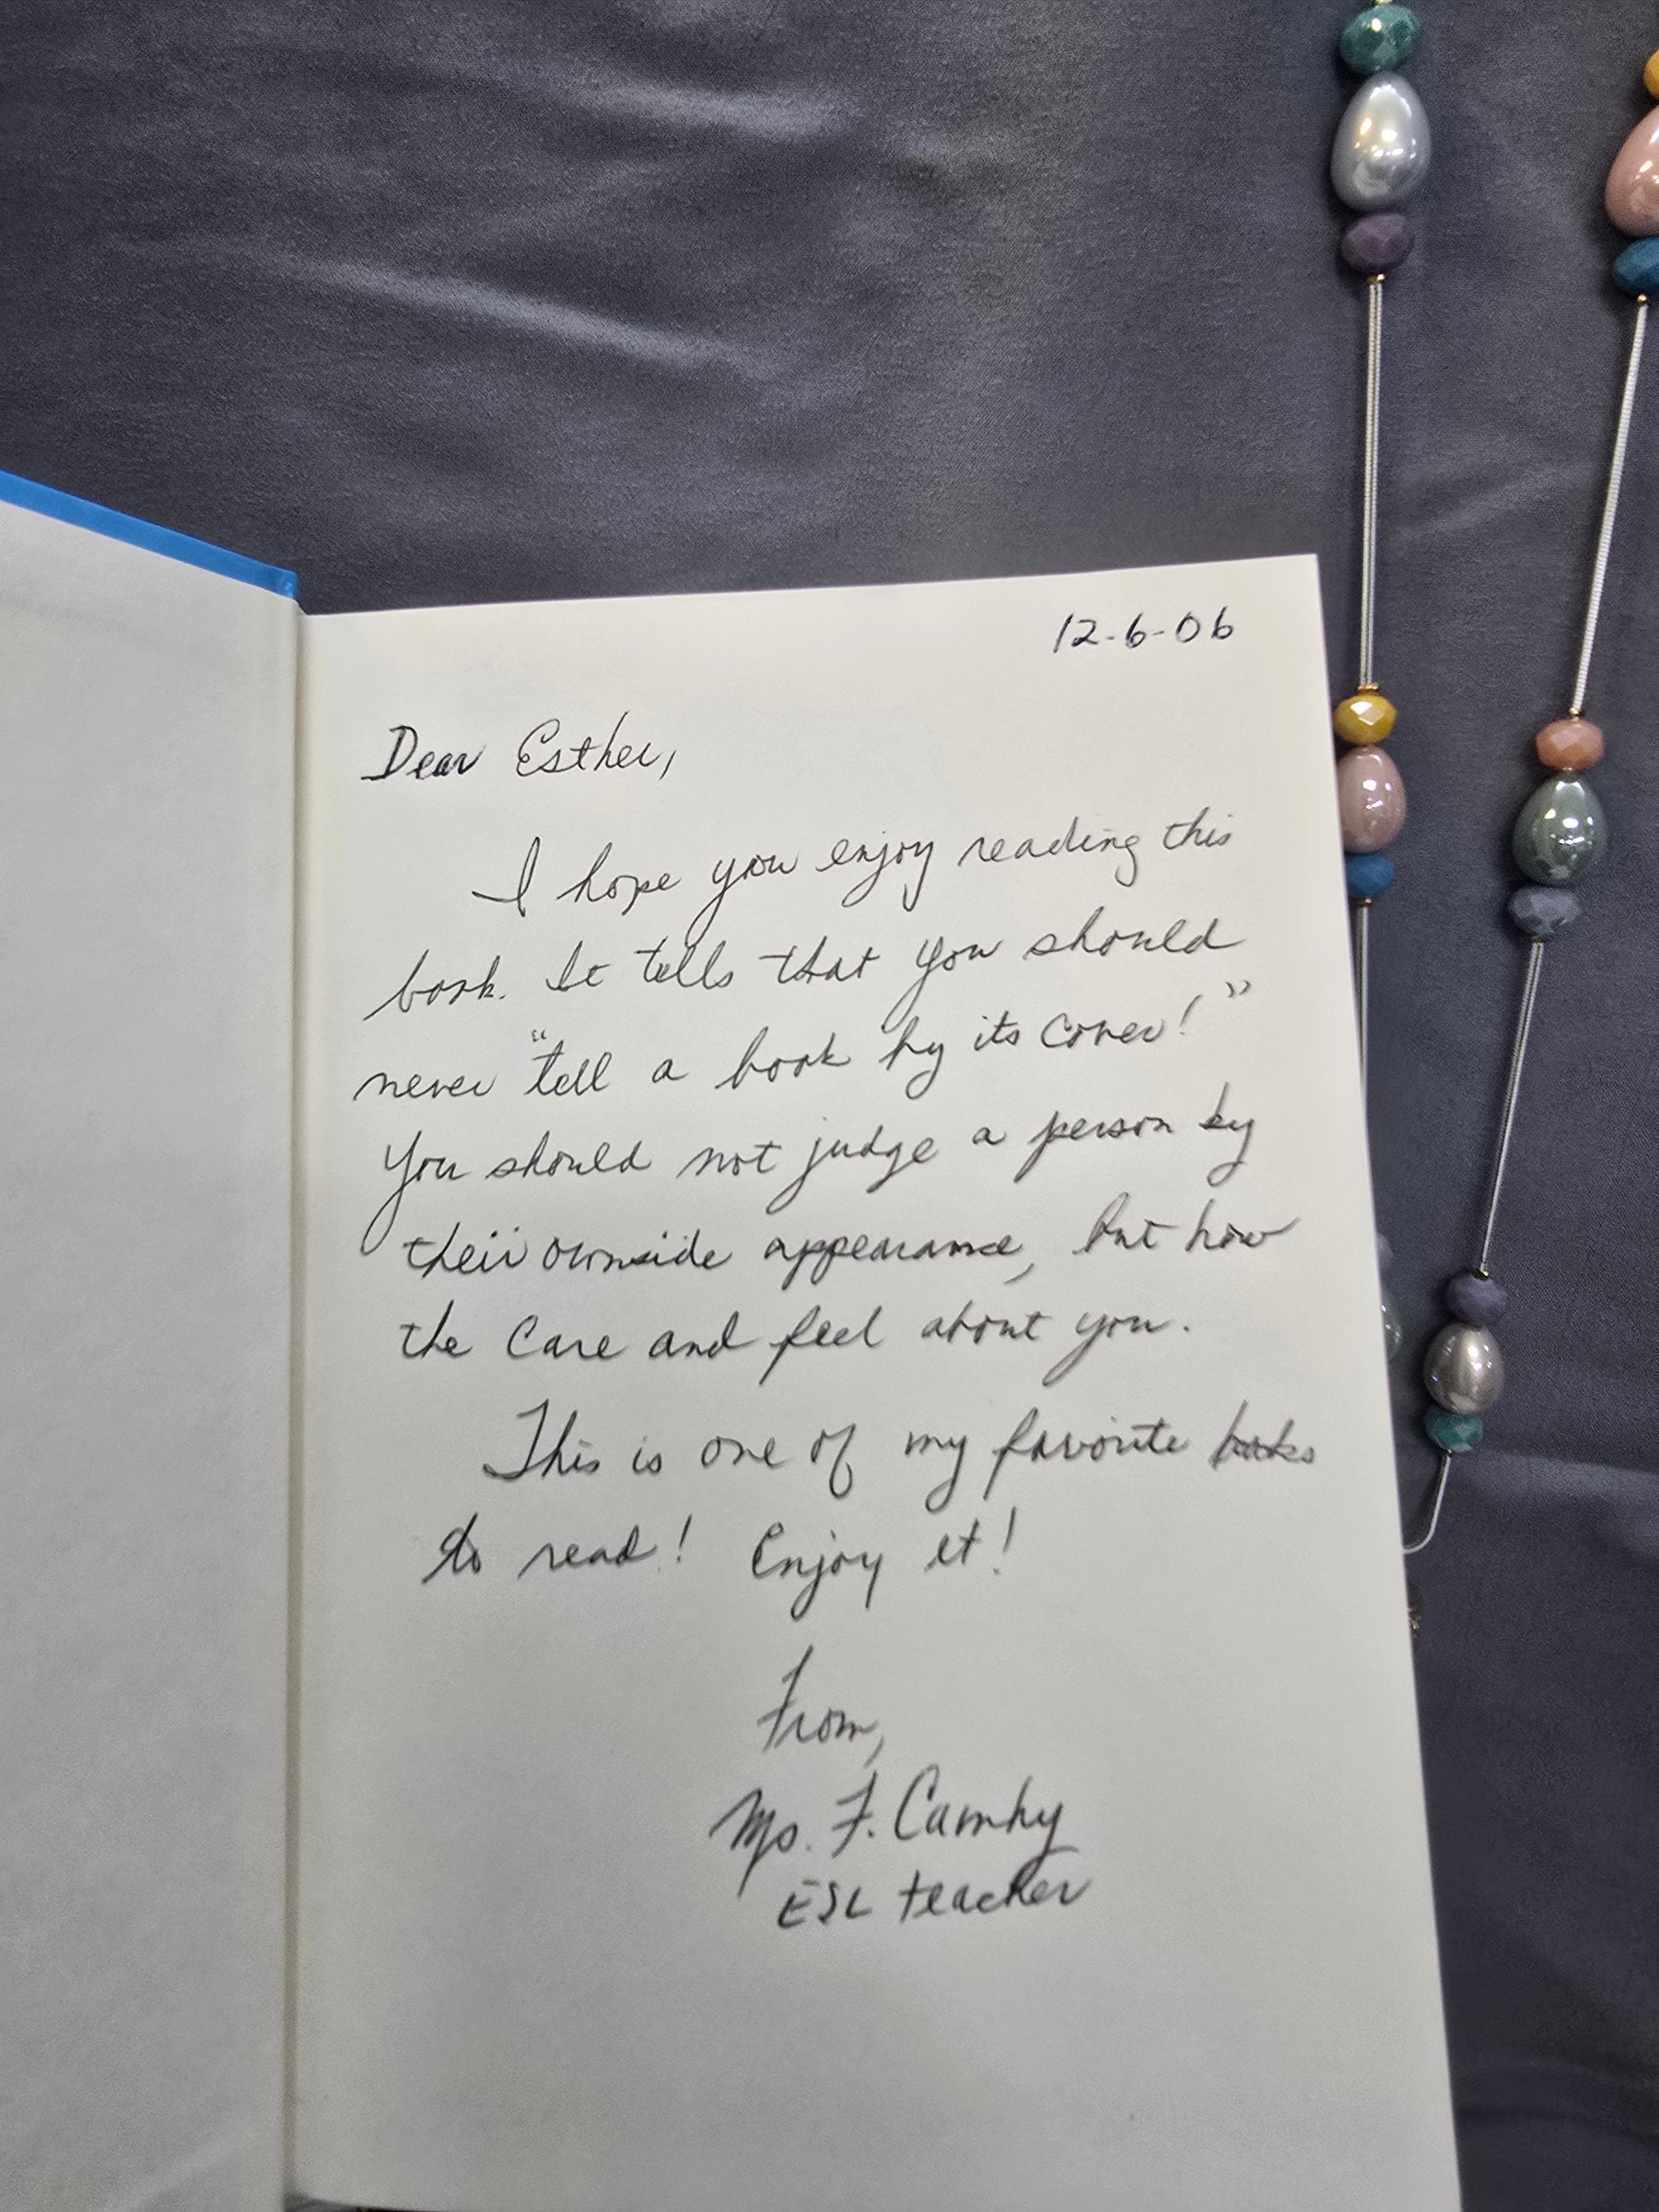 12-6-06
Dear Esther,
I hope you enjoy reading this
book. It tells that you should
never "tell a book by its cover!"
You should not judge a person by
their ownside appearance, but how
the care and feel about you.
This is one of my favorite books
to read! Enjoy it!
From,
Ms. F. Camhy
ESL teacher